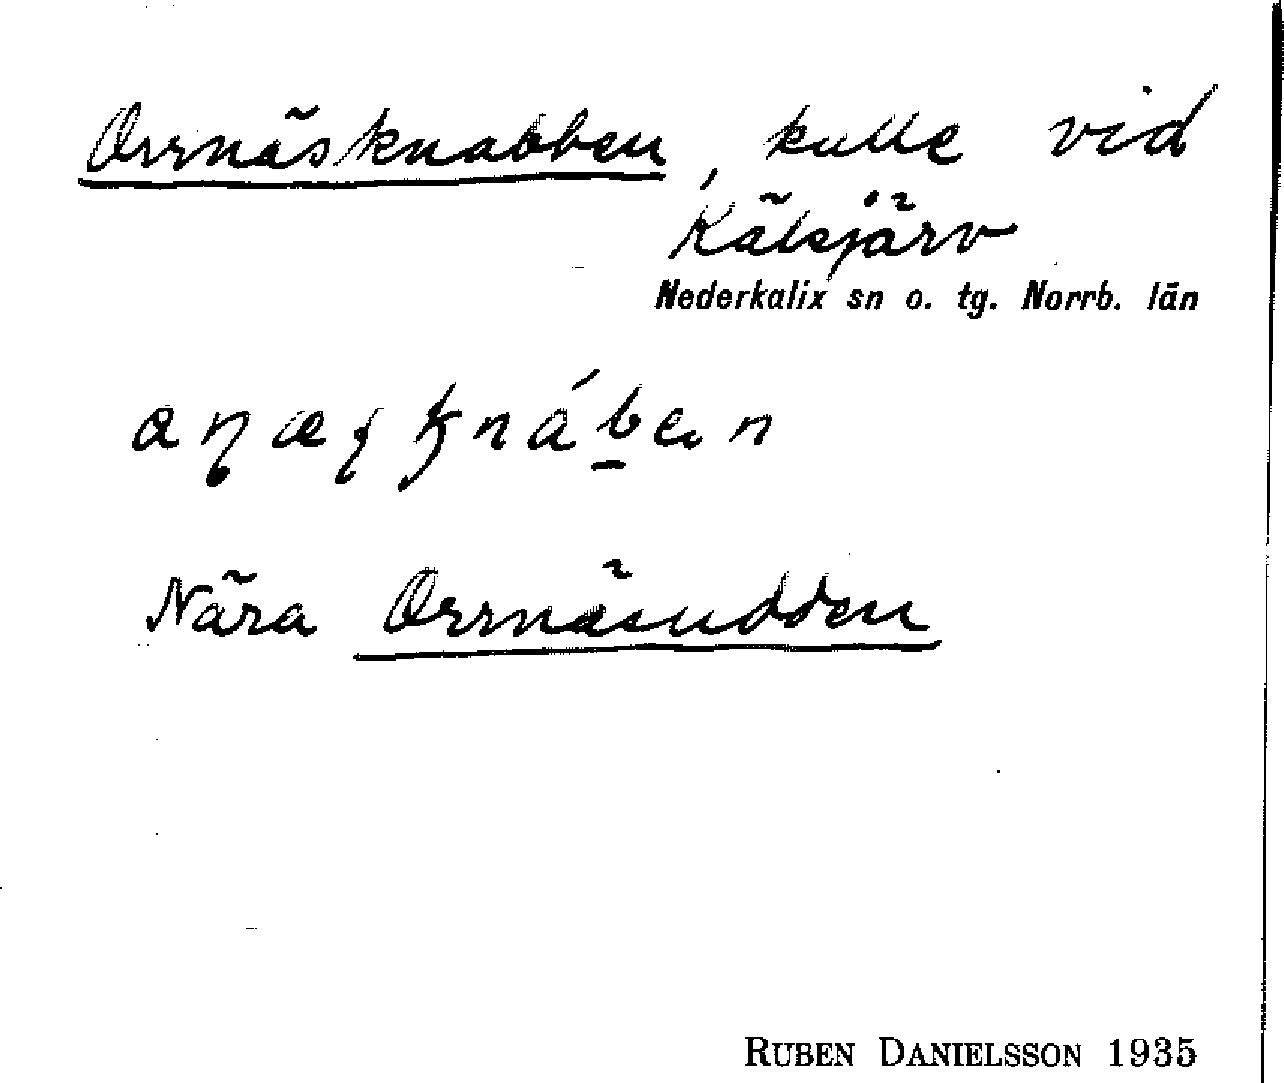 Orrnäsknabben, kulle vid
Kälsjärv
Nederkalix sn o. tg. Norrb. län
Nära Orrnäsudden
RUBEN DANIELSSON 1935